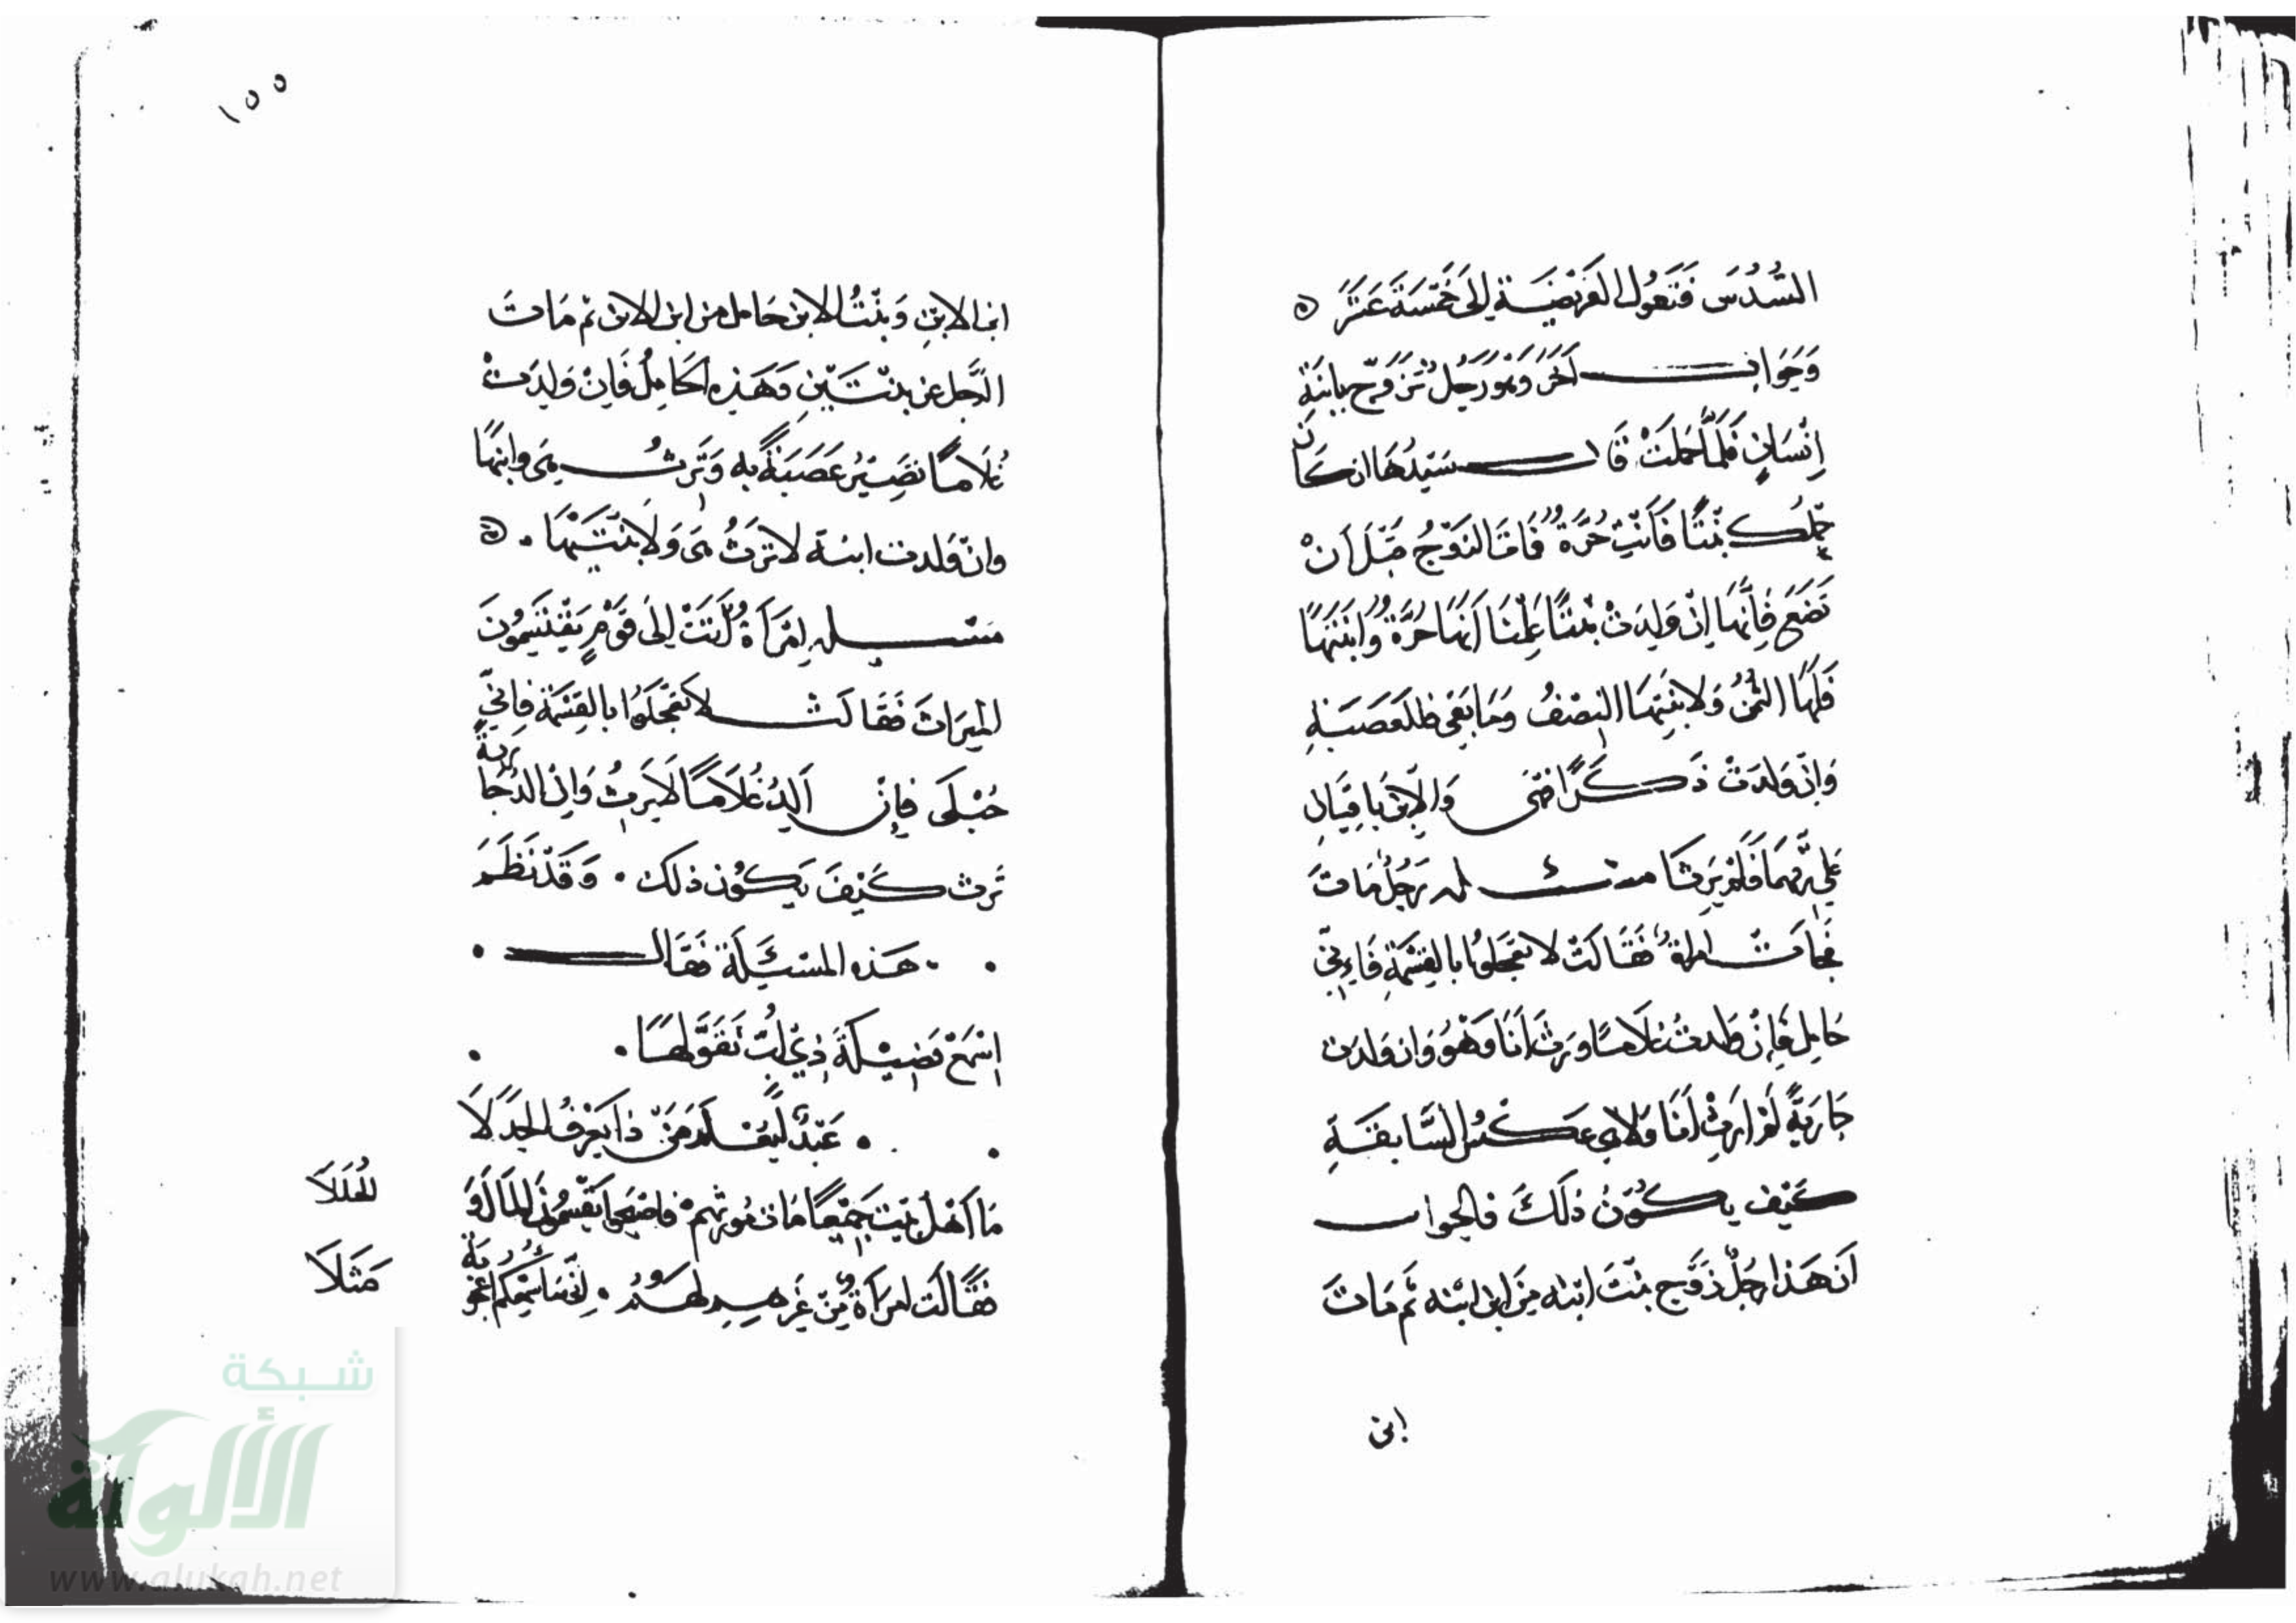 السُّدُسَ فَتَعُولُ الفَرِيضَة إلى خَمْسَةَ عَشَرَ
وَجَوَابٌ آخَرُ وَهُوَ رَجُلٌ تَزَوَّجَ بابنَةِ
إنْسَانٍ فَلَمَّا حَمَلَتْ قَال سَيِّدُهَا ان كَانَ
حملك بِنْتًا فَأَنْتِ حُرَّةٌ فَمَاتَ الزَوْجُ قَبْلَ اَنْ
تَضَعَ فَإنَّهَا إنْ وَلَدَتْ بِنْتًا عَلِمْنَا أنهَا حُرَّةٌ وَابْنَتَهَا
فَلَهَا الثُّمنُ وَلابْنَتِهَا النِصْفُ وَمَا بَقِيَ فللعَصَبَةِ
وَانْ وَلَدَتْ ذَكَرًا فهي وَالابن بَاقِيَانِ
عَلى رقِّهِمَا فَلَمْ يَرِثَا مسئله رَجُلٌ مَاتَ
فَجَاءت امراة فَقَالَتْ لا تعجَلوا بالقِسْمَةِ فَاِنِّي
حَامِل فَإنْ ولدتُ غُلَامًا وَرِثتُ اَنَا وَهُوَ وَان وَلدت
جَارِيَةً لَمْ ارِثْ اَنَا وَلا هي عَكْسُ السَّابِقَةِ
كَيْفَ يَكُوْنُ ذَلكَ فالجواب
اَن هَذا رَجُلٌ زَوَّج بِنْتَ ابنه مِنَ ابن ابنه ثم مَاتَ
ابن
١٥٥
ابن الابْنِ وَبِنْتُ الابن حَامل من ابن الابن ثم مَاتَ
الرَّجل عن بنْتَيْنِ وَهَذِه الحَامِلُ فَإنْ وَلَدَتْ
غُلَامًا تصِيْرُ عَصَبَةً به وَتَرِثُ هي وابنهَا
وانْ وَلدت ابنة لا تَرِثُ هي وَلا بنْتَهَا
مَسْئله امْرَأةٌ أتَتْ إلىَ قَوْمٍ يَقْتَسِمُونَ
الميرَاثَ فَقَالَتْ لا تعْجَلُوا بالقِسْمَة فإنيِّ
حُبْلَى فإنْ اَلِدُ غُلَامًا لَمْ يَرِثْ وَإنْ الدُ جَارية
تَرِث كَيْفَ يَكوُن ذلك . وَقَدْ نَظَمَ
هَذه المَسْئَلَة فَقَال
اسْمَعْ فَضِيْلَةَ ذِيْ لُبّ تَقَوَّلهَا
عَبْدٌ لِيُعْلِمَ مَنْ ذا يَعْرِفُ الجَدَلَا
مَا أهْل بَيْت جَمِيْعًا مَات مُورِثُهمْ فاصْبَحوا يَقْسِمُونَ المَالَ وَ
الحُلَلَا
فقَالَت امرَأةٌ مِّنْ غَيْرِهِم لَهُمُ . إنِّي سَأسْمِعكُمْ اعْجُوبَةً
مَثَلَا
شبكة
الألوكة
www.alukah.net